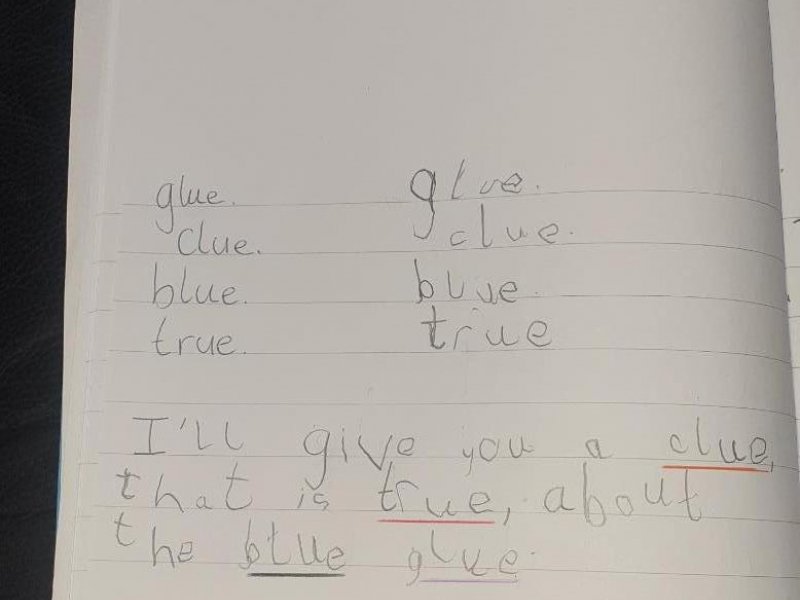 glue. glue.
clue. clue.
blue. blue.
true. true
I'll give you a clue,
that is true, about
the blue glue.